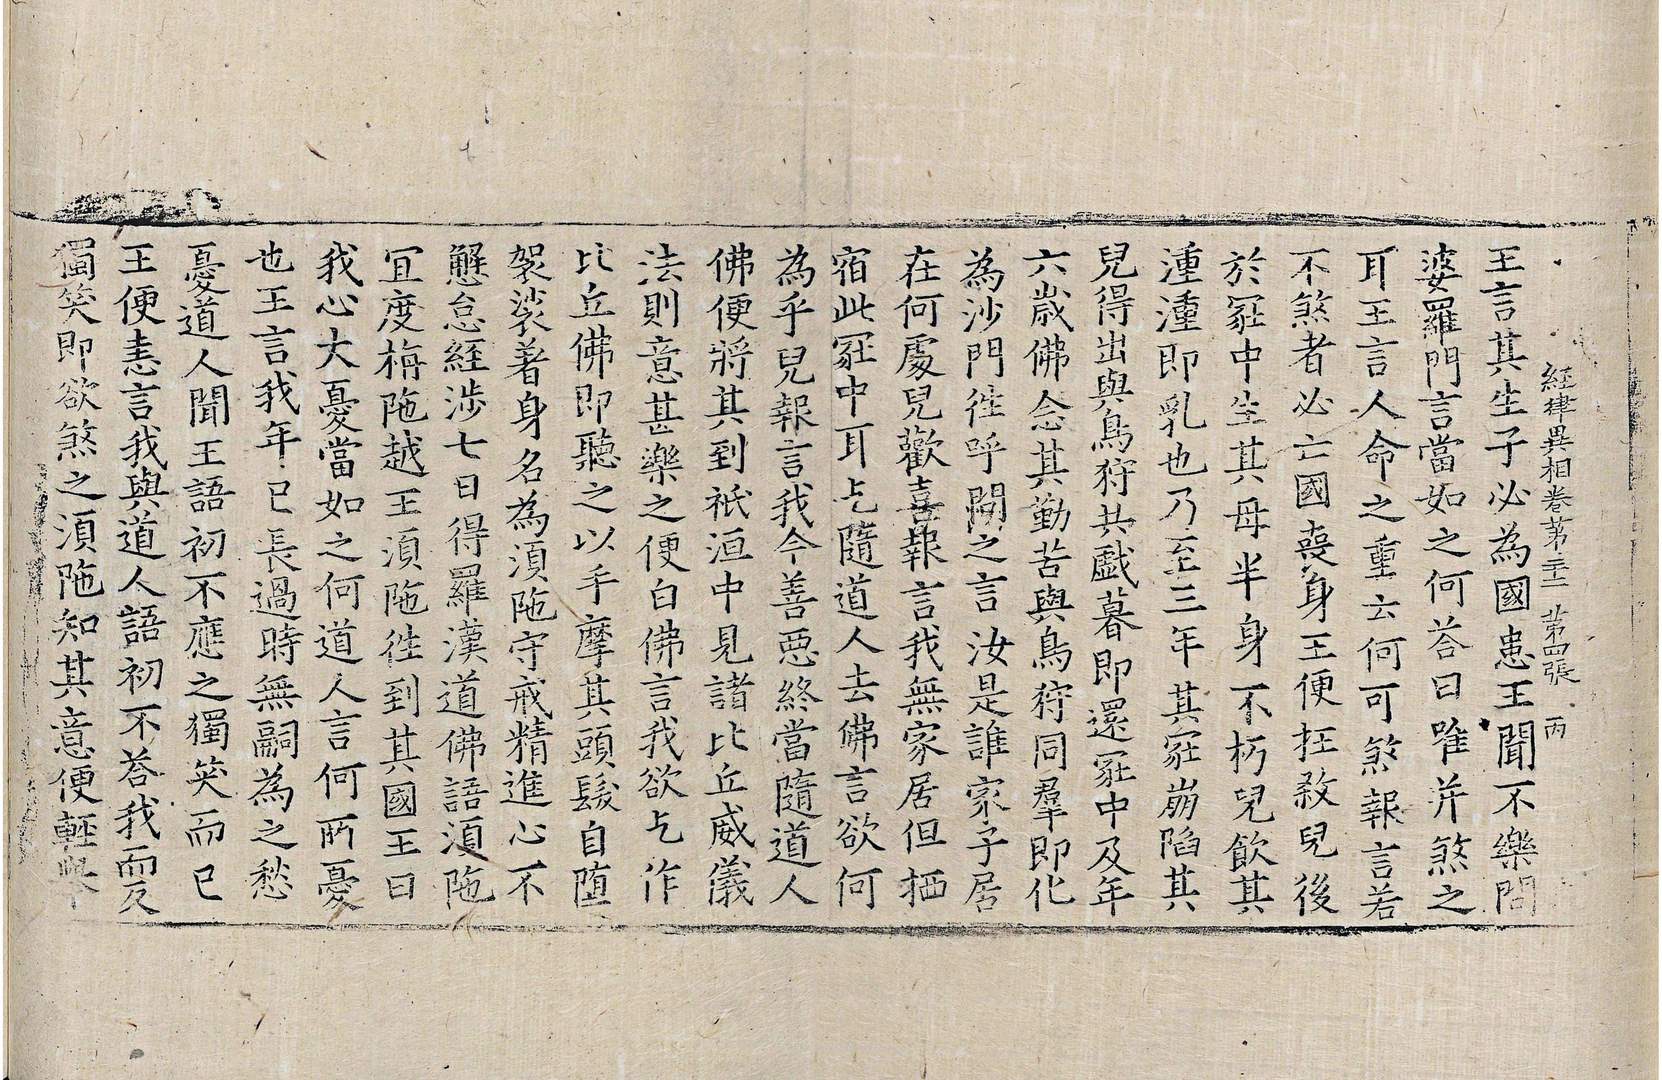 經律異相卷第二十二 第四張 丙
王言其生子必為國患王聞不樂問
婆羅門言當如之何荅曰唯并煞之
耳王言人命之重云何可煞報言若
不煞者必亡國喪身王便抂殺兒後
於冢中生其母半身不朽兒飲其
湩湩即乳也乃至三年其冢崩陷其
兒得出與鳥狩共戲暮即還冢中及年
六歲佛念其勤苦與鳥狩同羣即化
為沙門往呼問之言汝是誰家子居
在何處兒歡喜報言我無家居但栖
宿此冢中耳乞隨道人去佛言欲何
為乎兒報言我今善惡終當隨道人
佛便將其到祇洹中見諸比丘威儀
法則意甚樂之便白佛言我欲乞作
比丘佛即聽之以手摩其頭髮自墮
袈裟著身名為須陁守戒精進心不
懈怠經涉七日得羅漢道佛語須陁
冝度栴陁越王須陁往到其國王曰
我心大憂當如之何道人言何所憂
也王言我年已長過時無嗣為之愁
憂道人聞王語初不應之獨笑而已
王便恚言我與道人語初不荅我而反
獨笑即欲煞之須陁知其意便輕舉